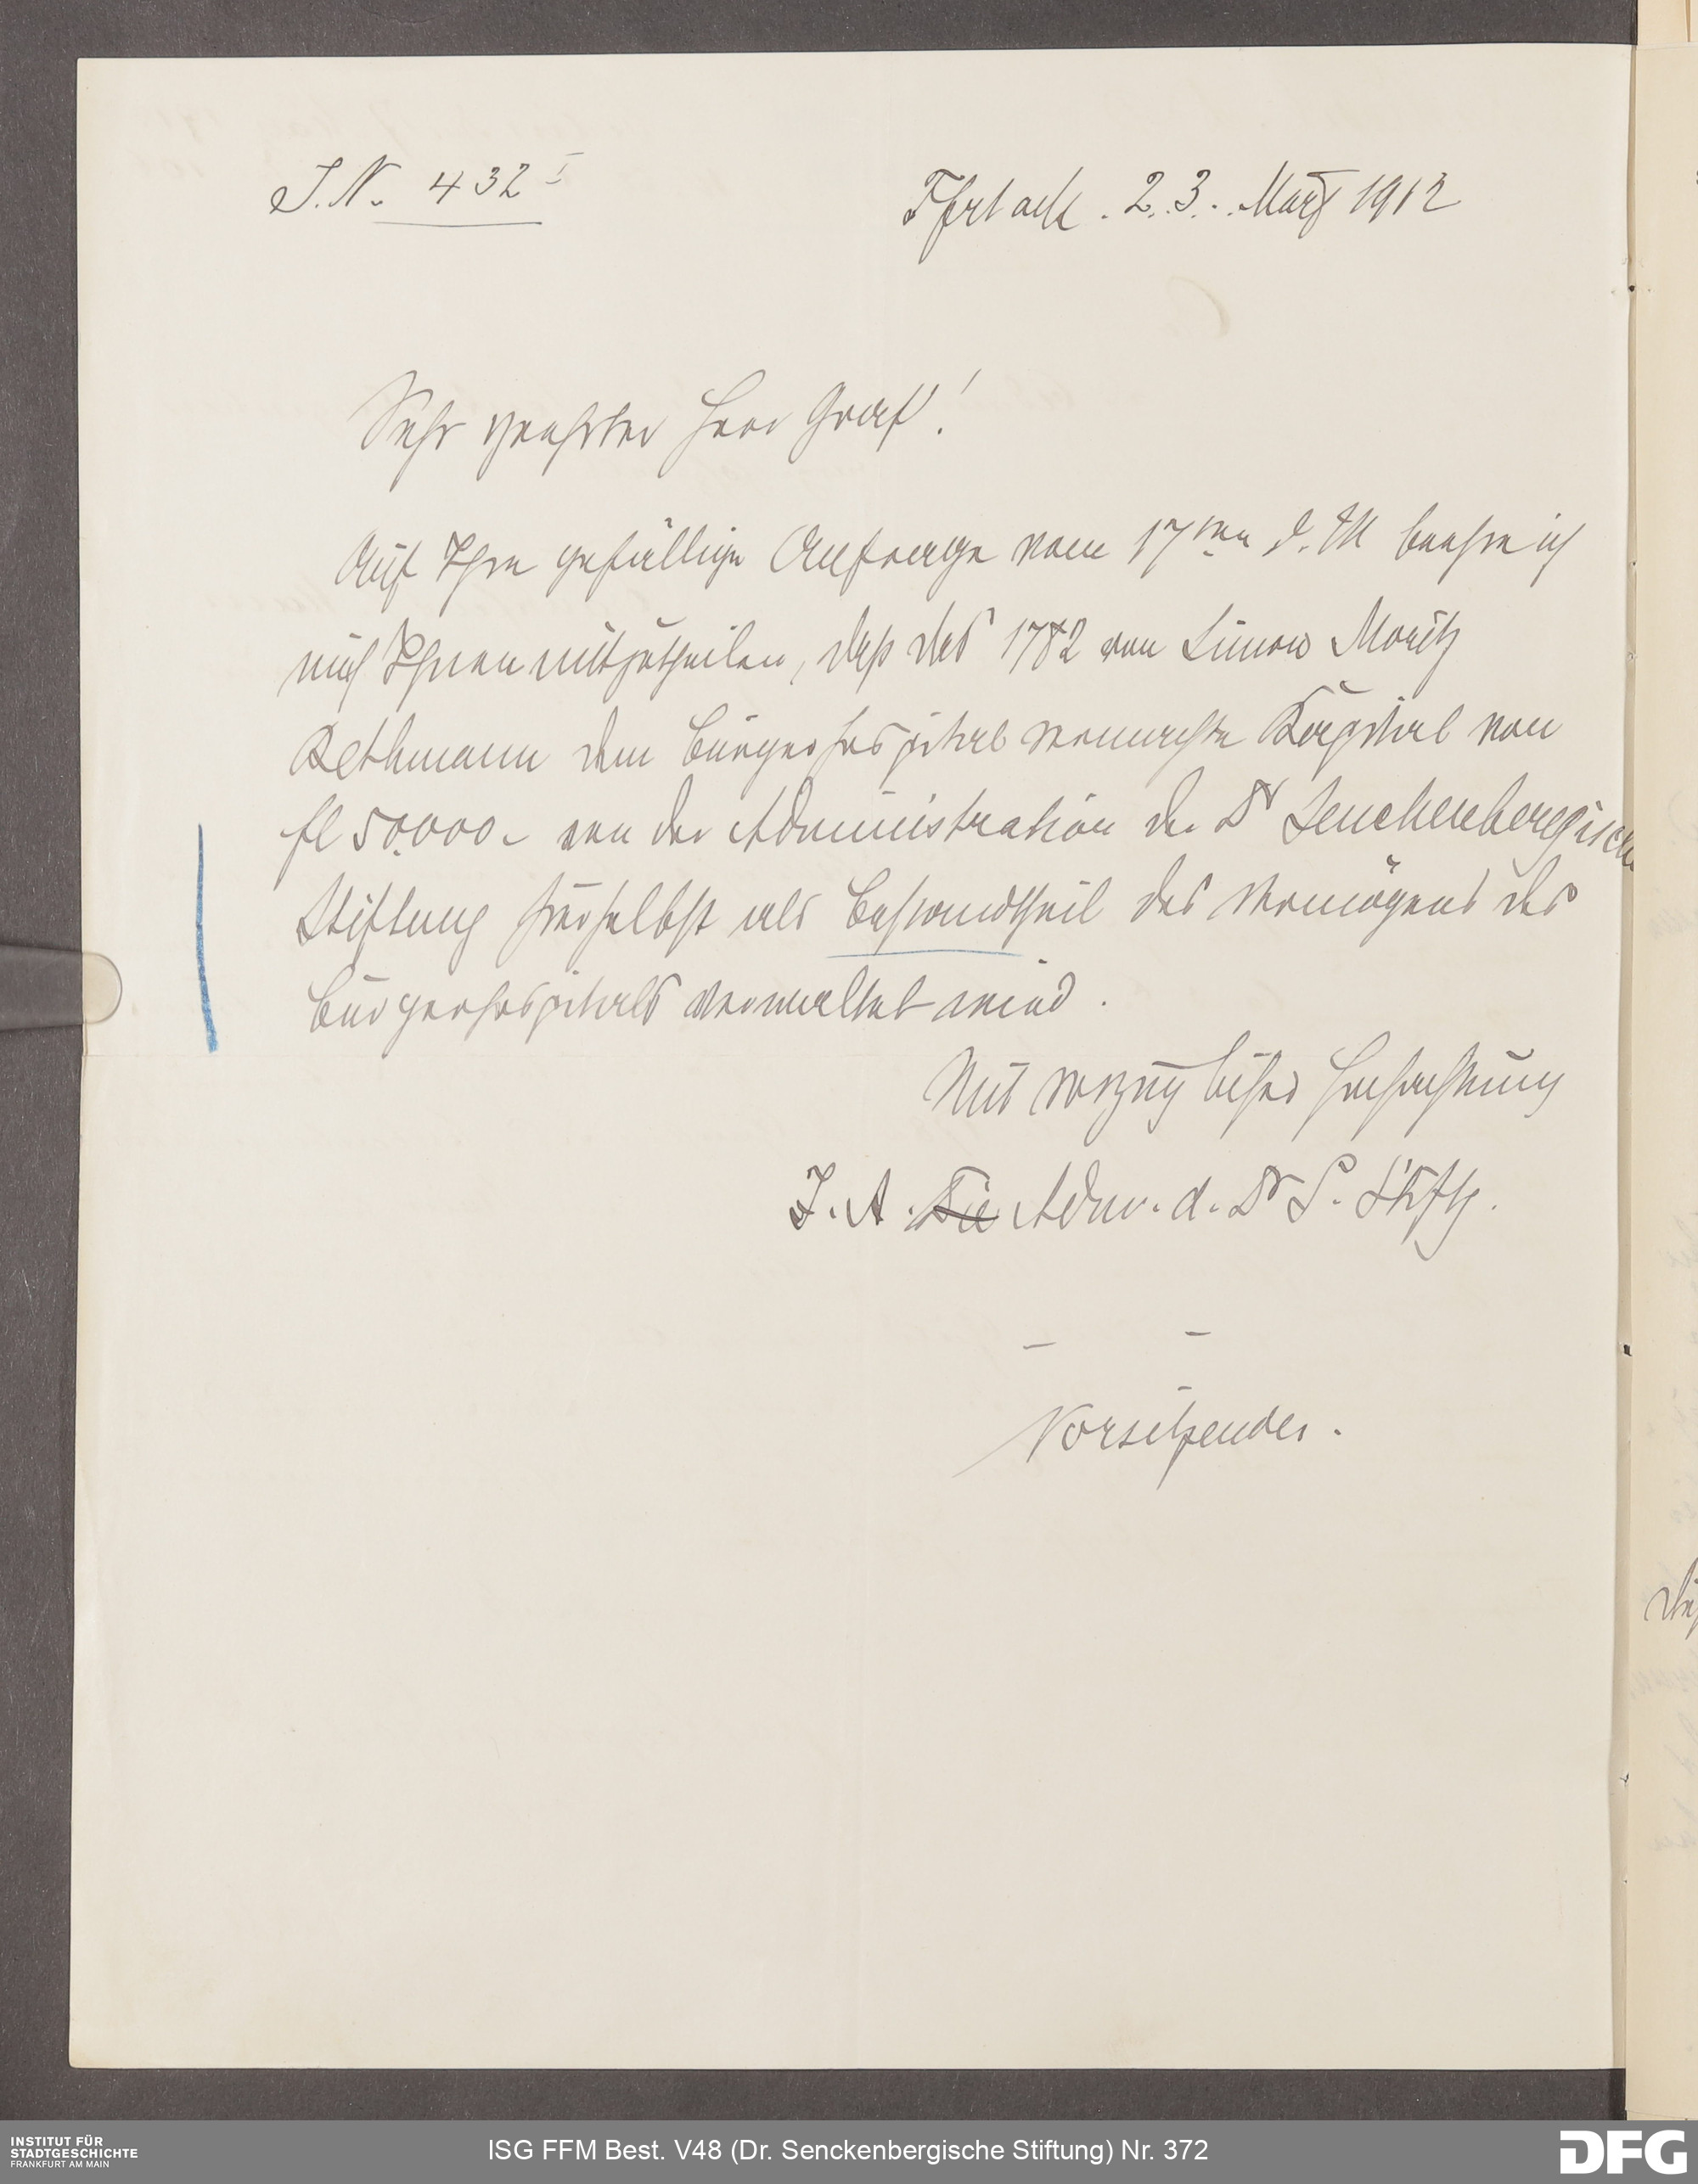 J. N. 432 I
Ffrt a/M. 23. März 1912
Sehr geehrter Herr Graf!
Auf Ihre gefällige Anfrage vom 17ten d. M beehre ich
mich Ihnen mitzutheilen, daß das 1782 von Simon Moritz
Bethmann dem Bürgerhospital vermachte Kapital von
fl 50.000.- von der Administration der Dr Senckenbergischen
Stiftung hierselbst als Bestandtheil des Vermögens des
Bürgerhospitals verwaltet wird.
Mit vorzüglicher Hochachtung
I. A. Die Adm. d. Dr S. Stiftg.
Vorsitzender.
INSTITUT FÜR
STADTGESCHICHTE
FRANKFURT AM MAIN
ISG FFM Best. V48 (Dr. Senckenbergische Stiftung) Nr. 372
DFG